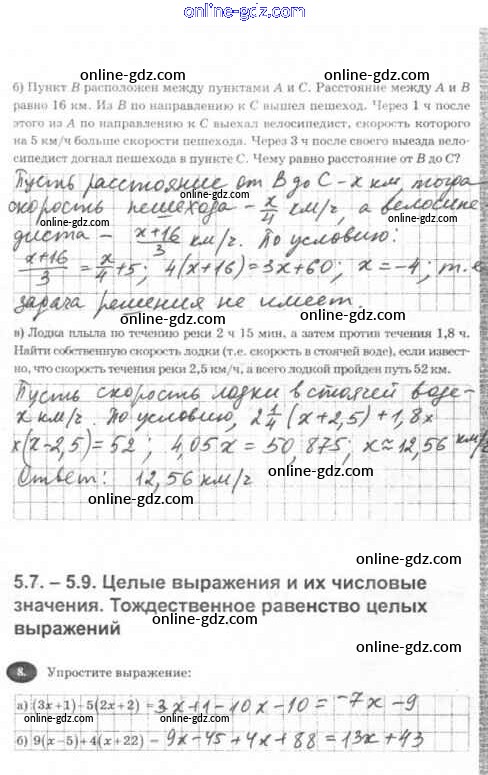 online-gdz.com
online-gdz.com
б) Пункт B расположен между пунктами A и C. Расстояние между A и B
равно 16 км. Из B по направлению к C вышел пешеход. Через 1 ч после
online-gdz.com online-gdz.com
этого из A по направлению к C выехал велосипедист, скорость которого
на 5 км/ч больше скорости пешехода. Через 3 ч после своего выезда вело-
online-gdz.com
сипедист догнал пешехода в пункте C. Чему равно расстояние от B до C?
Пусть расстояние от B до C – x км, тогда
online-gdz.com
скорость пешехода – x/4 км/ч, а велосипе-
online-gdz.com
диста – (x+16)/3 км/ч. По условию:
online-gdz.com
(x+16)/3 = x/4 + 5; 4(x+16)=3x+60; x=-4; т.е.
online-gdz.com
задача решения не имеет.
online-gdz.com
в) Лодка плыла по течению реки 2 ч 15 мин, а затем против течения 1,8 ч.
Найти собственную скорость лодки (т.е. скорость в стоячей воде), если извест-
online-gdz.com online-gdz.com
но, что скорость течения реки 2,5 км/ч, а всего лодкой пройден путь 52 км.
Пусть скорость лодки в стоячей воде-
online-gdz.com
x км/ч. По условию, 2 1/4 (x+2,5)+1,8x
online-gdz.com
x(x-2,5)=52; 4,05x=50,875; x≈12,56 км/ч
online-gdz.com
Ответ: 12,56 км/ч
online-gdz.com
online-gdz.com
5.7. – 5.9. Целые выражения и их числовые
значения. Тождественное равенство целых
выражений
online-gdz.com
8. Упростите выражение:
online-gdz.com
а) (3x+1)–5(2x+2) = 3x+1-10x-10= -7x-9
online-gdz.com
online-gdz.com
б) 9(x–5)+4(x+22) = 9x-45+4x+88=13x+43
online-gdz.com